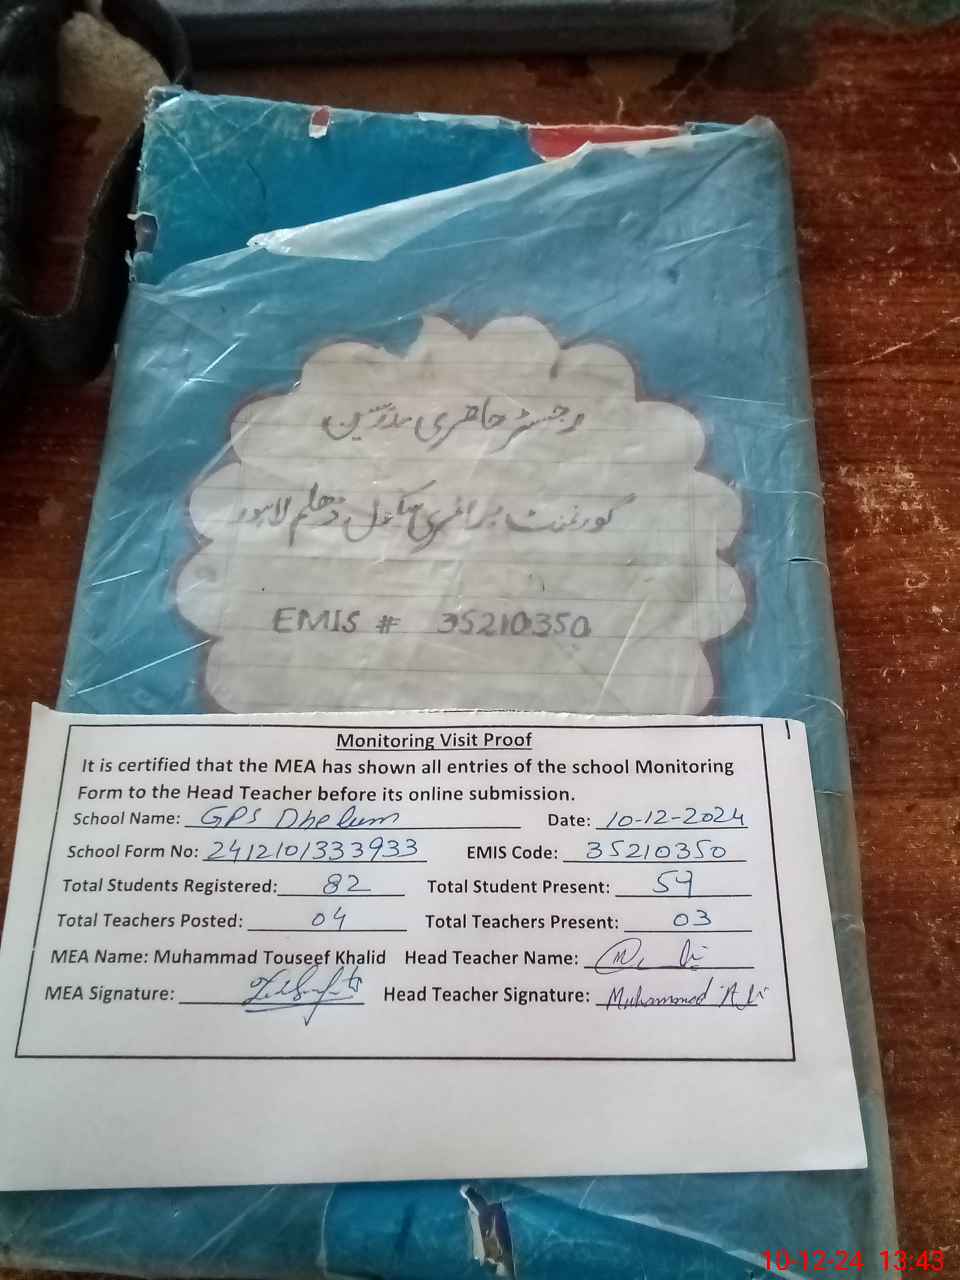 رجسٹر حاضری مدرسین
گورنمنٹ پرائمری سکول دھلم لاہور
EMIS # 35210350
Monitoring Visit Proof
It is certified that the MEA has shown all entries of the school Monitoring
Form to the Head Teacher before its online submission.
School Name: GPS Dhelum Date: 10-12-2024
School Form No: 2412101333933 EMIS Code: 35210350
Total Students Registered: 82 Total Student Present: 59
Total Teachers Posted: 04 Total Teachers Present: 03
MEA Name: Muhammad Touseef Khalid Head Teacher Name:
MEA Signature: Head Teacher Signature: Muhammad Ali
10-12-24 13:43